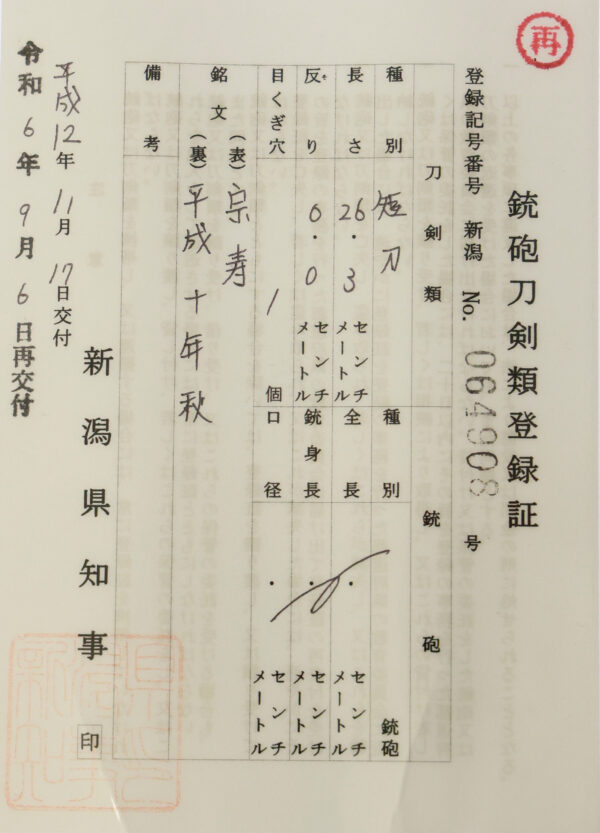 再
銃砲刀剣類登録証
登録記号番号 新潟 No. 064908 号
刀剣類 銃砲
種別 短刀 種別 銃砲
長さ 26.3 センチメートル 全長 ・ センチメートル
反り 0.0 センチメートル 銃身長 ・ センチメートル
目くぎ穴 1 個 口径 ・ センチメートル
銘文 (表) 宗寿
(裏) 平成十年秋
備考
新潟県知事 印
平成12年11月17日交付
令和6年9月6日再交付